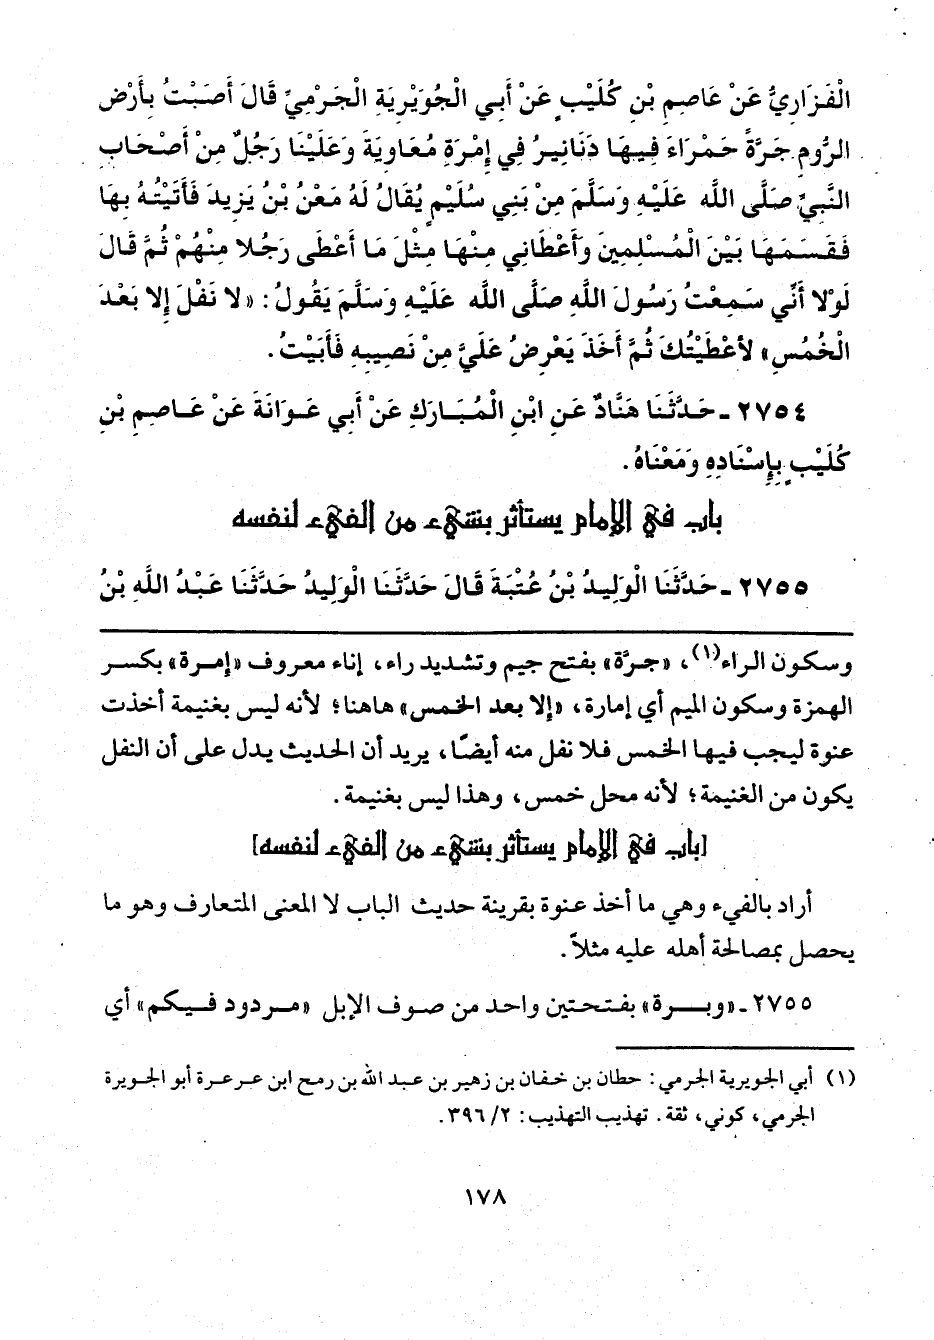 الْفَزَارِيُّ عَنْ عَاصِمِ بْنِ كُلَيْبٍ عَنْ أَبِي الْجُوَيْرِيَةِ الْجَرْمِيِّ قَالَ أَصَبْتُ بِأَرْضِ
الرُّومِ جَرَّةً حَمْرَاءَ فِيهَا دَنَانِيرُ فِي إِمْرَةِ مُعَاوِيَةَ وَعَلَيْنَا رَجُلٌ مِنْ أَصْحَابِ
النَّبِيِّ صَلَّى اللَّه عَلَيْهِ وَسَلَّمَ مِنْ بَنِي سُلَيْمٍ يُقَالُ لَهُ مَعْنُ بْنُ يَزِيدَ فَأَتَيْتُهُ بِهَا
فَقَسَمَهَا بَيْنَ الْمُسْلِمِينَ وَأَعْطَانِي مِنْهَا مِثْلَ مَا أَعْطَى رَجُلا مِنْهُمْ ثُمَّ قَالَ
لَوْلا أَنِّي سَمِعْتُ رَسُولَ اللَّهِ صَلَّى اللَّه عَلَيْهِ وَسَلَّمَ يَقُولُ: «لا نَفْلَ إِلا بَعْدَ
الْخُمُسِ» لأعْطَيْتُكَ ثُمَّ أَخَذَ يَعْرِضُ عَلَيَّ مِنْ نَصِيبِهِ فَأَبَيْتُ.
٢٧٥٤ ـ حَدَّثَنَا هَنَّادٌ عَنِ ابْنِ الْمُبَارَكِ عَنْ أَبِي عَوَانَةَ عَنْ عَاصِمِ بْنِ
كُلَيْبٍ بِإِسْنَادِهِ وَمَعْنَاهُ.
باب في الإمام يستأثر بشيء من الفيء لنفسه
٢٧٥٥ ـ حَدَّثَنَا الْوَلِيدُ بْنُ عُتْبَةَ قَالَ حَدَّثَنَا الْوَلِيدُ حَدَّثَنَا عَبْدُ اللَّهِ بْنُ
وسكون الراء(١)، «جرَّة» بفتح جيم وتشديد راء، إناء معروف «إمرة» بكسر
الهمزة وسكون الميم أي إمارة، «إلا بعد الخمس» هاهنا؛ لأنه ليس بغنيمة أخذت
عنوة ليجب فيها الخمس فلا نفل منه أيضًا، يريد أن الحديث يدل على أن النفل
يكون من الغنيمة؛ لأنه محل خمس، وهذا ليس بغنيمة.
[باب في الإمام يستأثر بشيء من الفيء لنفسه]
أراد بالفيء وهي ما أخذ عنوة بقرينة حديث الباب لا المعنى المتعارف وهو ما
يحصل بمصالحة أهله عليه مثلاً.
٢٧٥٥ ـ «وبرة» بفتحتين واحد من صوف الإبل «مردود فيكم» أي
(١) أبي الجويرية الجرمي: حطان بن خفان بن زهير بن عبد الله بن رمح ابن عرعرة أبو الجويرة
الجرمي، كوني، ثقة. تهذيب التهذيب: ٢/ ٣٩٦.
١٧٨